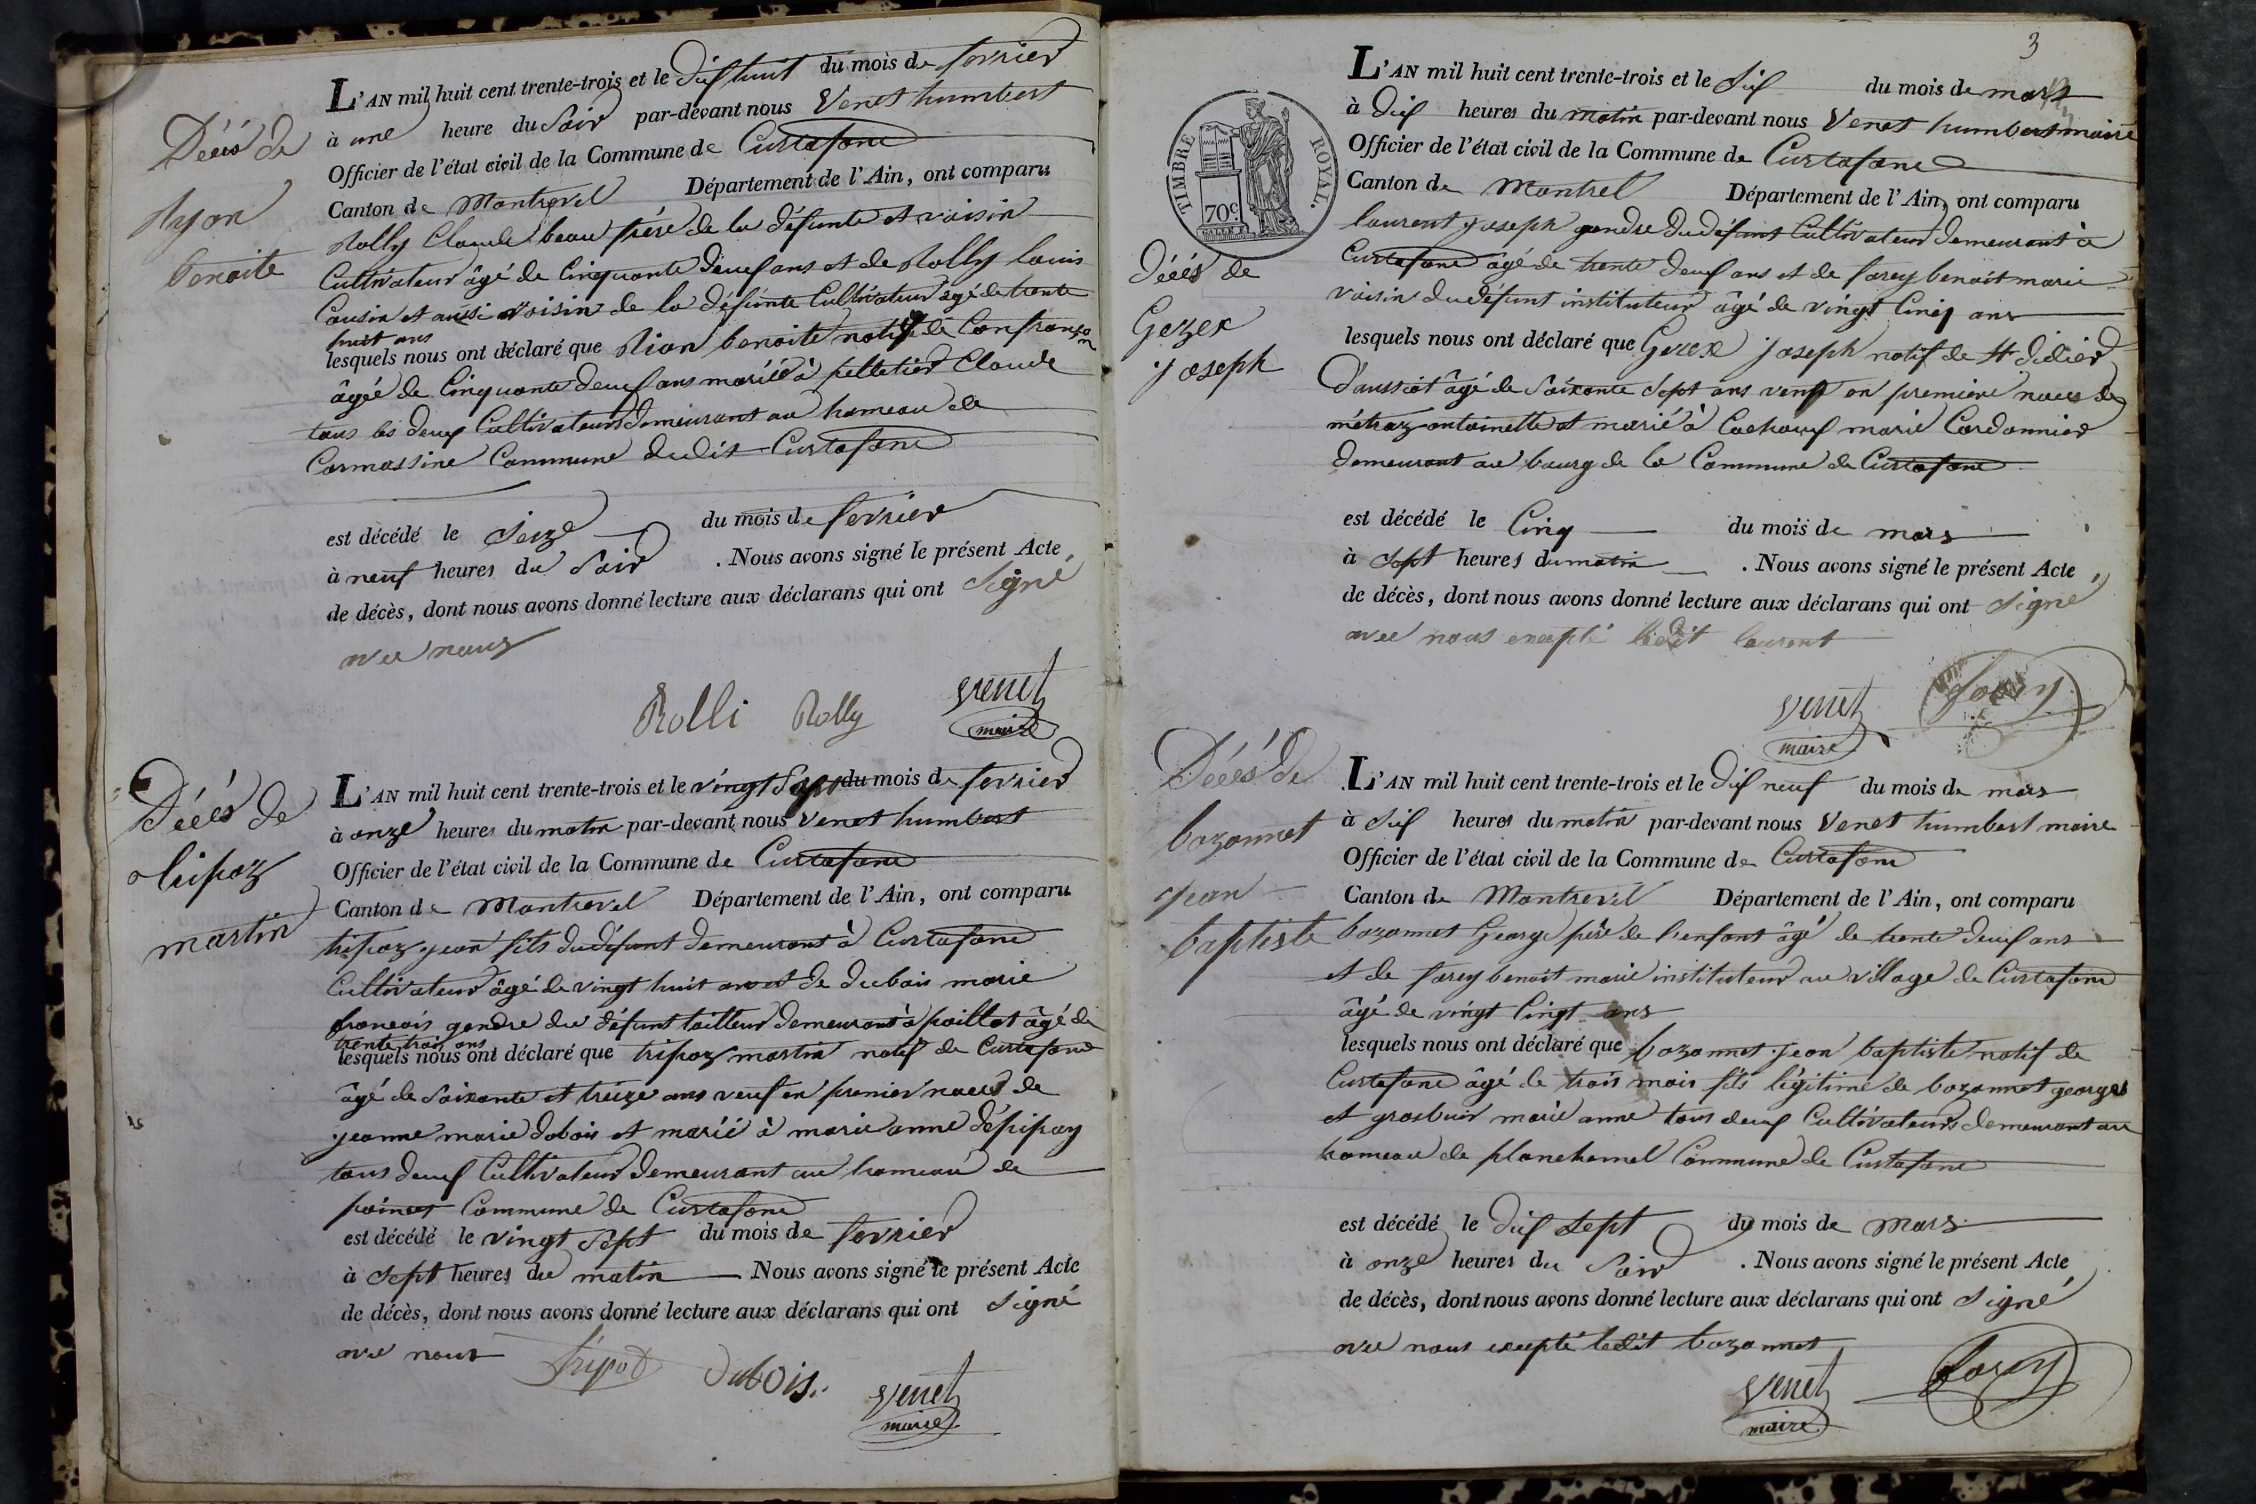 Décès de
Ryon
benoite
L'AN mil huit cent trente-trois et le dix huit du mois de fevrier
à une heure du Soir par-devant nous Venet humbert
Officier de l'état civil de la Commune de Curtafond
Canton de Montrevel Département de l'Ain, ont comparu
Rolly Claude beau frére de la défunte et voisin
Cultivateur âgé de Cinquante deux ans et de Rolly louis
Cousin et aussi voisin de la défunte Cultivateur agé de trente
huit ans
lesquels nous ont déclaré que Rion benoite native de Confrançon
âgée de Cinquante deux ans mariée à pelletier Claude
tous les deux Cultivateurs demeurant au hameau de
Cormassine Commune dudit Curtafond
est décédé le Seize du mois de fevrier
à neuf heures du Soir . Nous avons signé le présent Acte
de décès, dont nous avons donné lecture aux déclarans qui ont Signé
avec nous
Rolli Rolly Venet
maire
Décès de
tripoz
martin
L'AN mil huit cent trente-trois et le vingt Sept du mois de fevrier
à onze heures du matin par-devant nous Venet humbert
Officier de l'état civil de la Commune de Curtafond
Canton de Montrevel Département de l'Ain, ont comparu
tripoz jean fils du défunt demeurant à Curtafond
Cultivateur âgé de vingt huit ans et de dubois marie
francois gendre du défunt tailleur demeurant à poillat âgé de
trente trois ans
lesquels nous ont déclaré que tripoz martin natif de Curtafond
âgé de Soixante et treize ans veuf en premier noces de
jeanne marie dobois et marié à marie anne dépipay
tous deux Cultivateur demeurant au hameau de
Commune de Curtafond
est décédé le vingt Sept du mois de fevrier
à Sept heures du matin Nous avons signé le présent Acte
de décès, dont nous avons donné lecture aux déclarans qui ont Signé
avec nous
Tripod Dubois Venet
maire
3
TIMBRE ROYAL.
70c
Décès de
Gezex
joseph
L'AN mil huit cent trente-trois et le Six du mois de mars
à dix heures du matin par-devant nous Venet humbert maire
Officier de l'état civil de la Commune de Curtafond
Canton de Montrel Département de l'Ain, ont comparu
laurent joseph gendre du défunt Cultivateur demeurant à
Curtafond âgé de trente deux ans et de farey benoit marie
voisin du défunt instituteur âgé de vingt Cinq ans
lesquels nous ont déclaré que Gezex joseph natif de St didier
d'aussiat âgé de Soixante Sept ans veuf en premiere noces de
métraz antoinette et marié à Cachoux marie Cordonnier
demeurant au bourg de la Commune de Curtafond
est décédé le Cinq du mois de mars
à Sept heures du matin . Nous avons signé le présent Acte
de décès, dont nous avons donné lecture aux déclarans qui ont Signé
avec nous excepté ledit laurent
Venet farey
maire
Décès de
bozonnet
jean
baptiste
L'AN mil huit cent trente-trois et le dix neuf du mois de mars
à Six heures du matin par-devant nous Venet humbert maire
Officier de l'état civil de la Commune de Curtafond
Canton de Montrevel Département de l'Ain, ont comparu
bozonnet George père de l'enfant âgé de trente deux ans
et de farey benoit marie instituteur au village de Curtafond
âgé de vingt Cinqt ans
lesquels nous ont déclaré que bozonnet jean baptiste natif de
Curtafond âgé de trois mois fils légitime de bozonnet georges
et grosbuis marie anne tous deux Cultivateurs demeurant au
hameau de planchamel Commune de Curtafond
est décédé le dix Sept du mois de mars
à onze heures du Soir . Nous avons signé le présent Acte
de décès, dont nous avons donné lecture aux déclarans qui ont Signé
avec nous excepté ledit bozonnet
Venet farey
maire